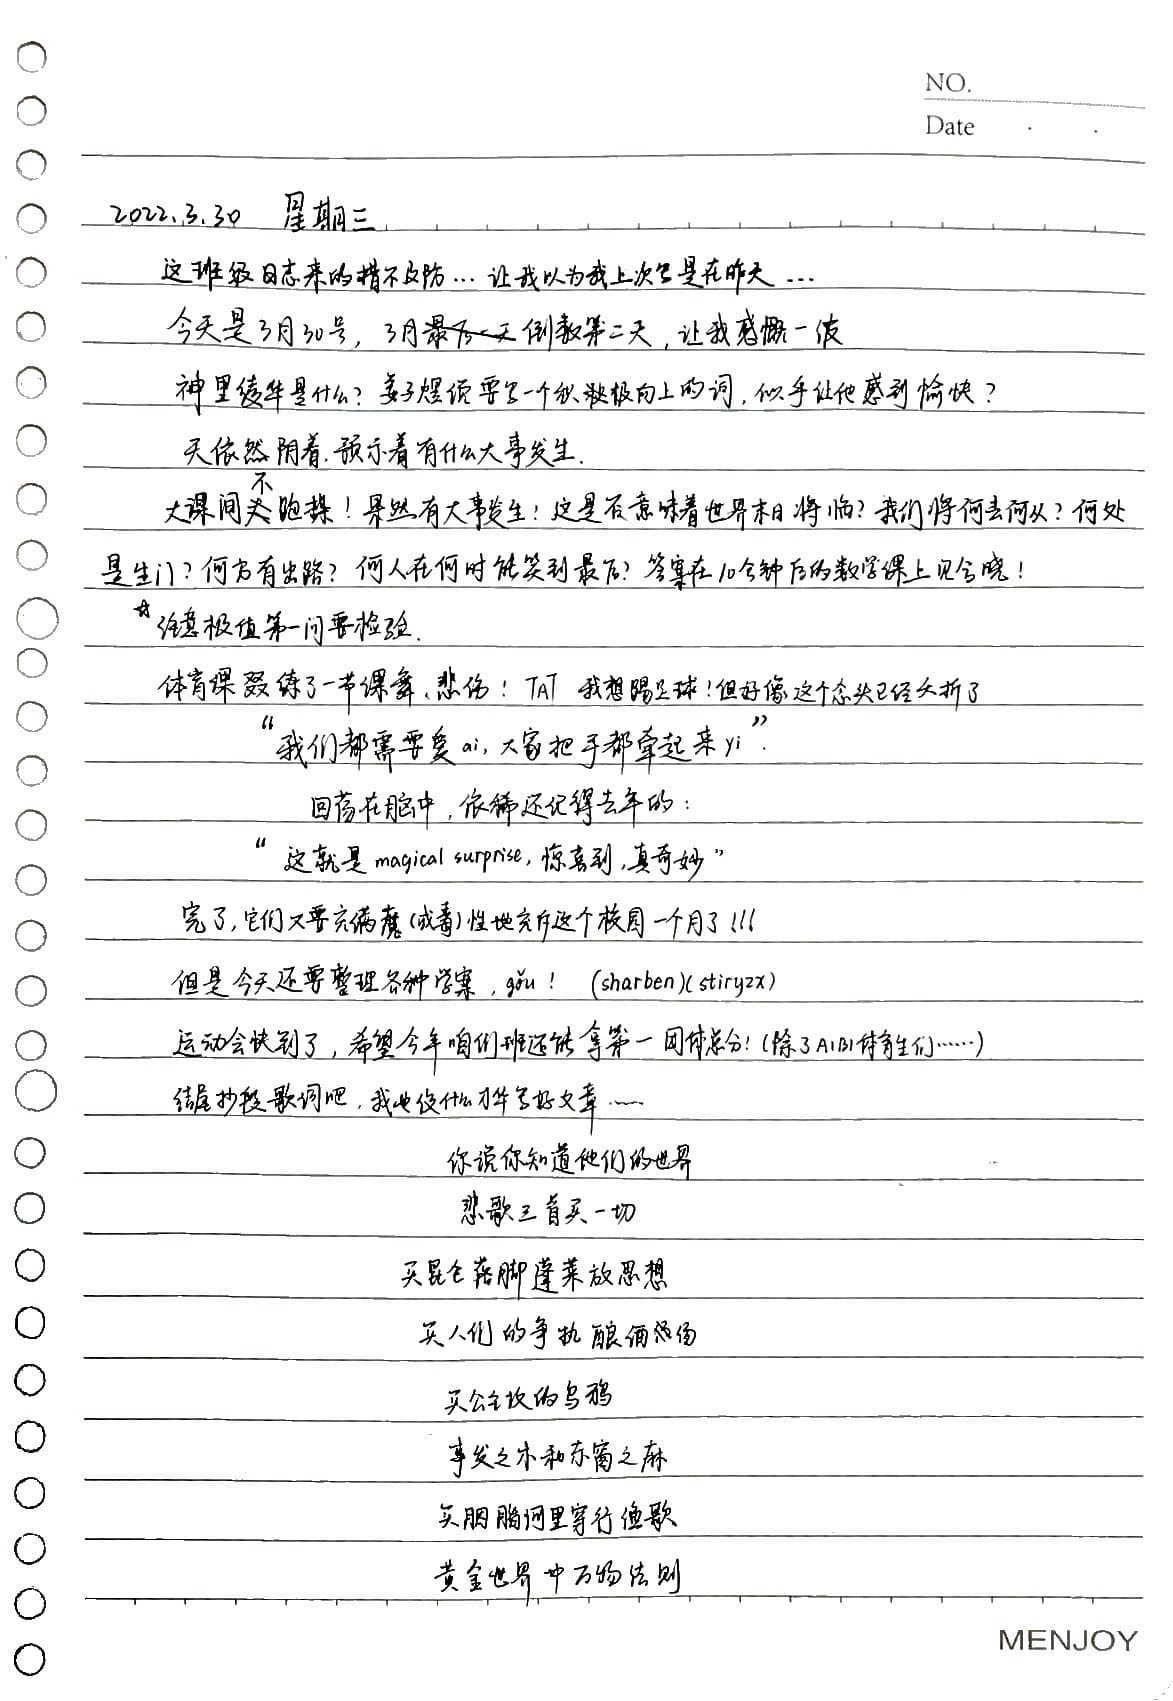 NO.
Date
2022.3.30 星期三
这班级日志来的措不及防…让我以为我上次写是在昨天…
今天是3月30号,3月最后一天倒数第二天,让我感慨一波
神里绫华是什么?姜子煜说要写一个积极向上的词,似乎让他感到愉快?
天依然阴着.预示着有什么大事发生.
大课间不跑操!果然有大事发生!这是否意味着世界末日将临?我们将何去何从?何处
是生门?何方有出路?何人在何时能笑到最后?答案在10分钟后的数学课上见分晓!
☆注意极值第一问要检验.
体育课又练了一节课舞、悲伤!TAT 我想踢足球!但好像这个念头已经夭折了
“我们都需要爱ai,大家把手都牵起来yi”.
回荡在脑中,依稀还记得去年的:
“这就是magical surprise,惊喜到,真奇妙”
完了,它们又要充满魔(或毒)性地充斥这个校园一个月了!!!
但是今天还要整理各种学案,gǒu! (sharben)(stiryzx)
运动会快到了,希望今年咱们班还能拿第一团体总分!(除了A1B1体育生们……)
结尾抄段歌词吧,我也没什么才华写好文章……
你说你知道他们的世界
悲歌三首买一切
买昆仑落脚蓬莱放思想
买人们的争执酿酒汤
买公主坟的乌鸦
事发之木和东窗之麻
买胭脂河里穿行渔歌
黄金世界中万物法则
MENJOY